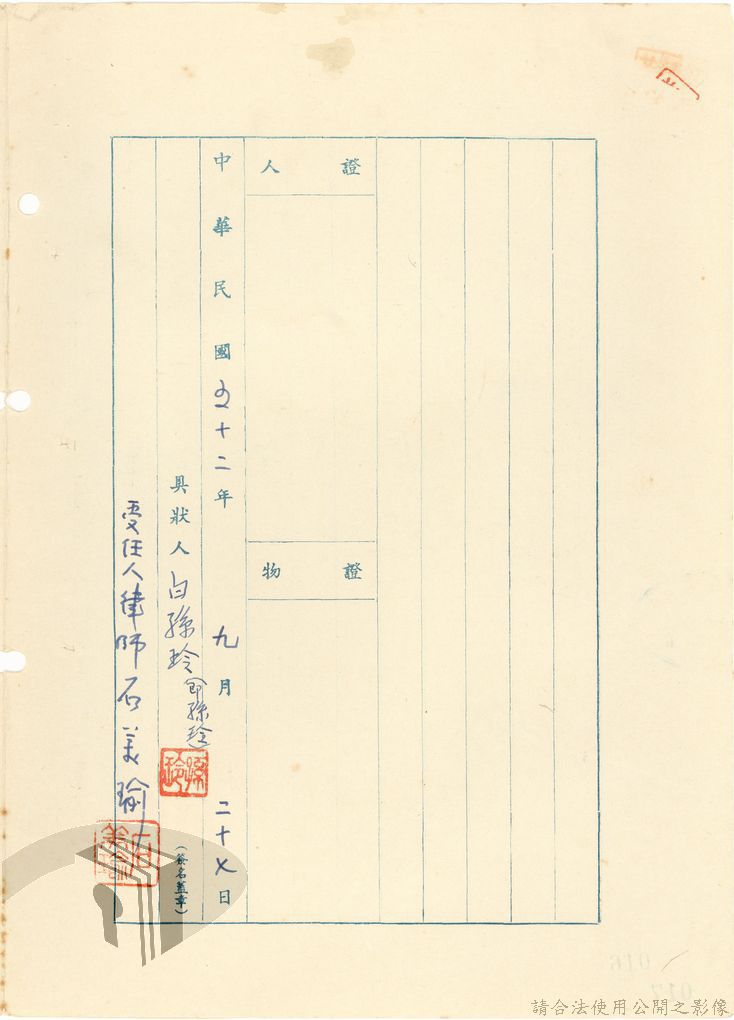 證人
證物
中華民國五十二年九月二十七日
具狀人白孫玲(即孫玲)
(簽名蓋章)
受任人律師石美瑜
請合法使用公開之影像